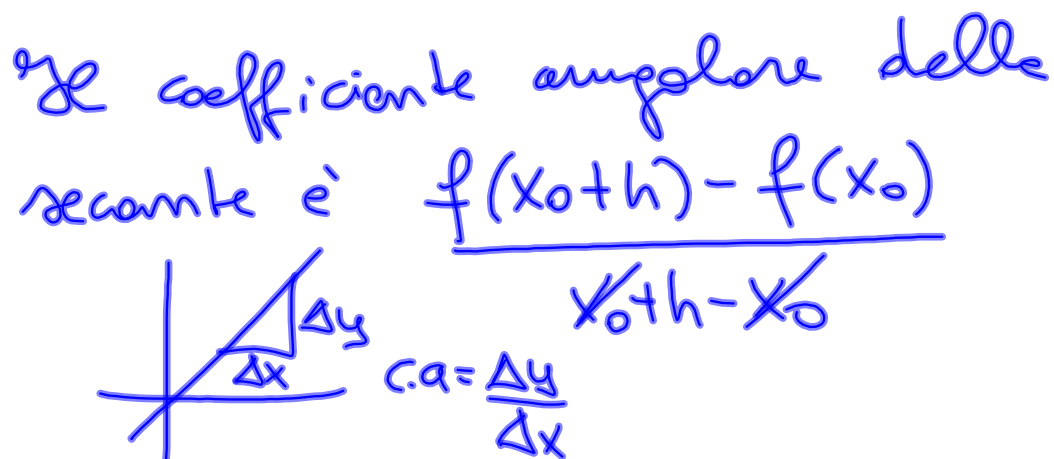 Il coefficiente angolare della
secante è f(x₀+h) - f(x₀)
x₀+h-x₀
Δy
Δx
c.a = Δy
Δx